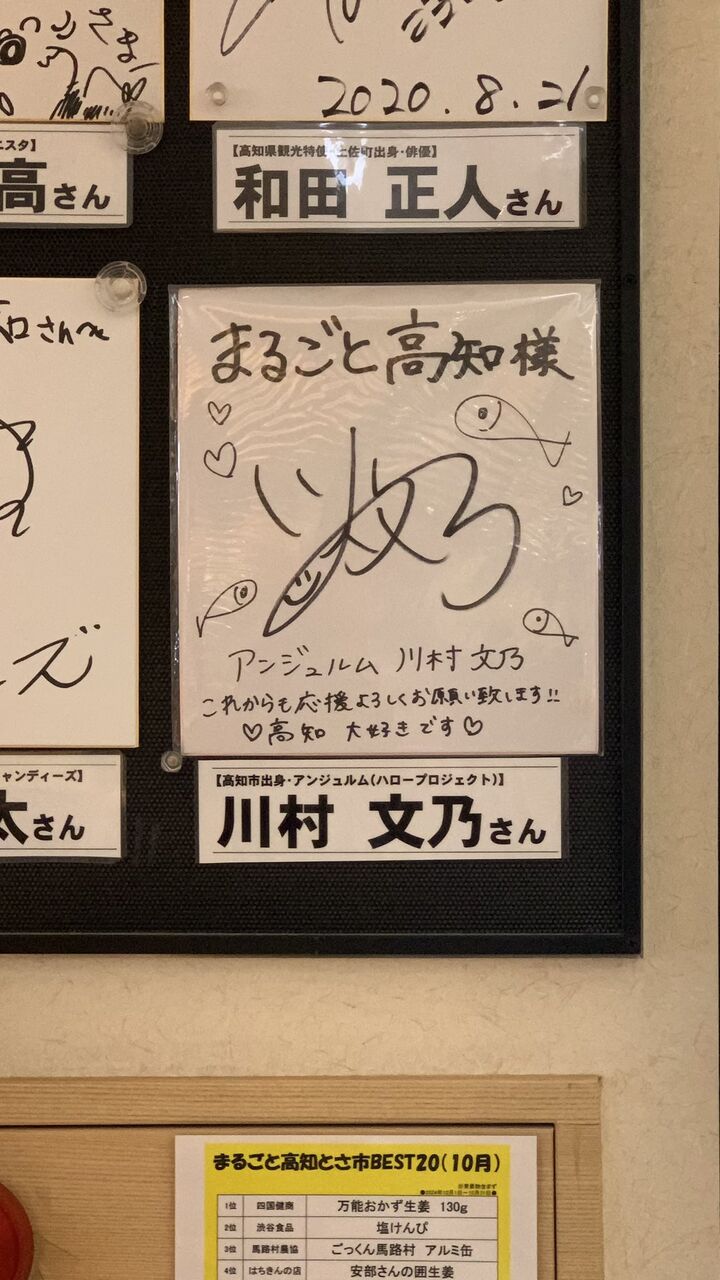 2020.8.21
高さん
【高知県観光特使・土佐町出身・俳優】
和田 正人さん
まるごと高知様
川村文乃
アンジュルム 川村文乃
これからも応援よろしくお願い致します!!
♡高知 大好きです♡
ャンディーズ】
太さん
【高知市出身・アンジュルム(ハロープロジェクト)】
川村 文乃さん
まるごと高知とさ市BEST20(10月)
1位 四国健商 万能おかず生姜 130g
2位 渋谷食品 塩けんぴ
3位 馬路村農協 ごっくん馬路村 アルミ缶
4位 はちきんの店 安部さんの囲生姜